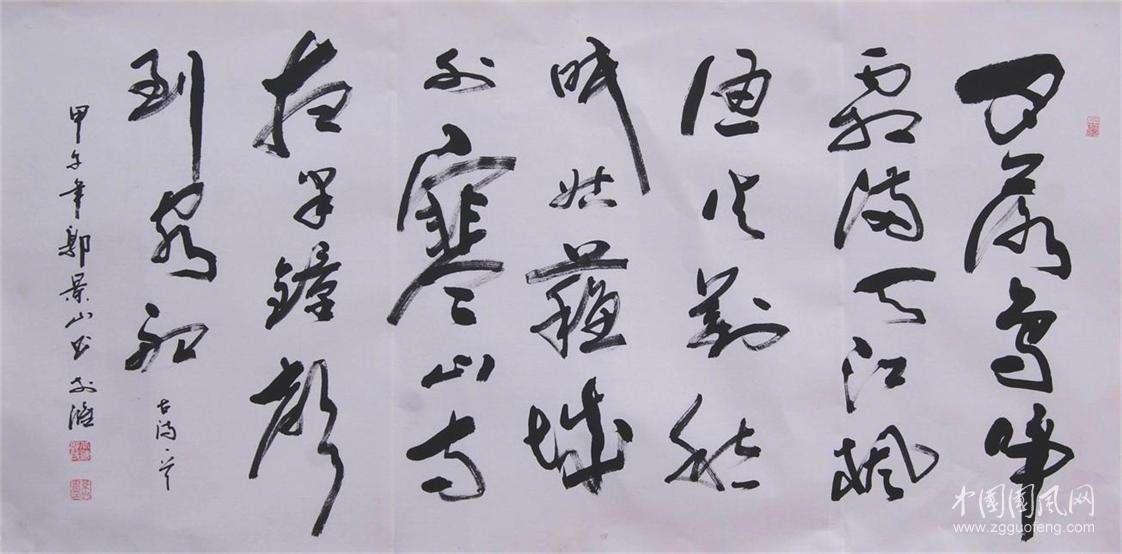 月落烏啼
霜滿天江楓
漁火對愁
眠姑蘇城
外寒山寺
夜半鐘聲
到客船
古詩一首
甲午年景山书
中国国风网
www.zgguofeng.com